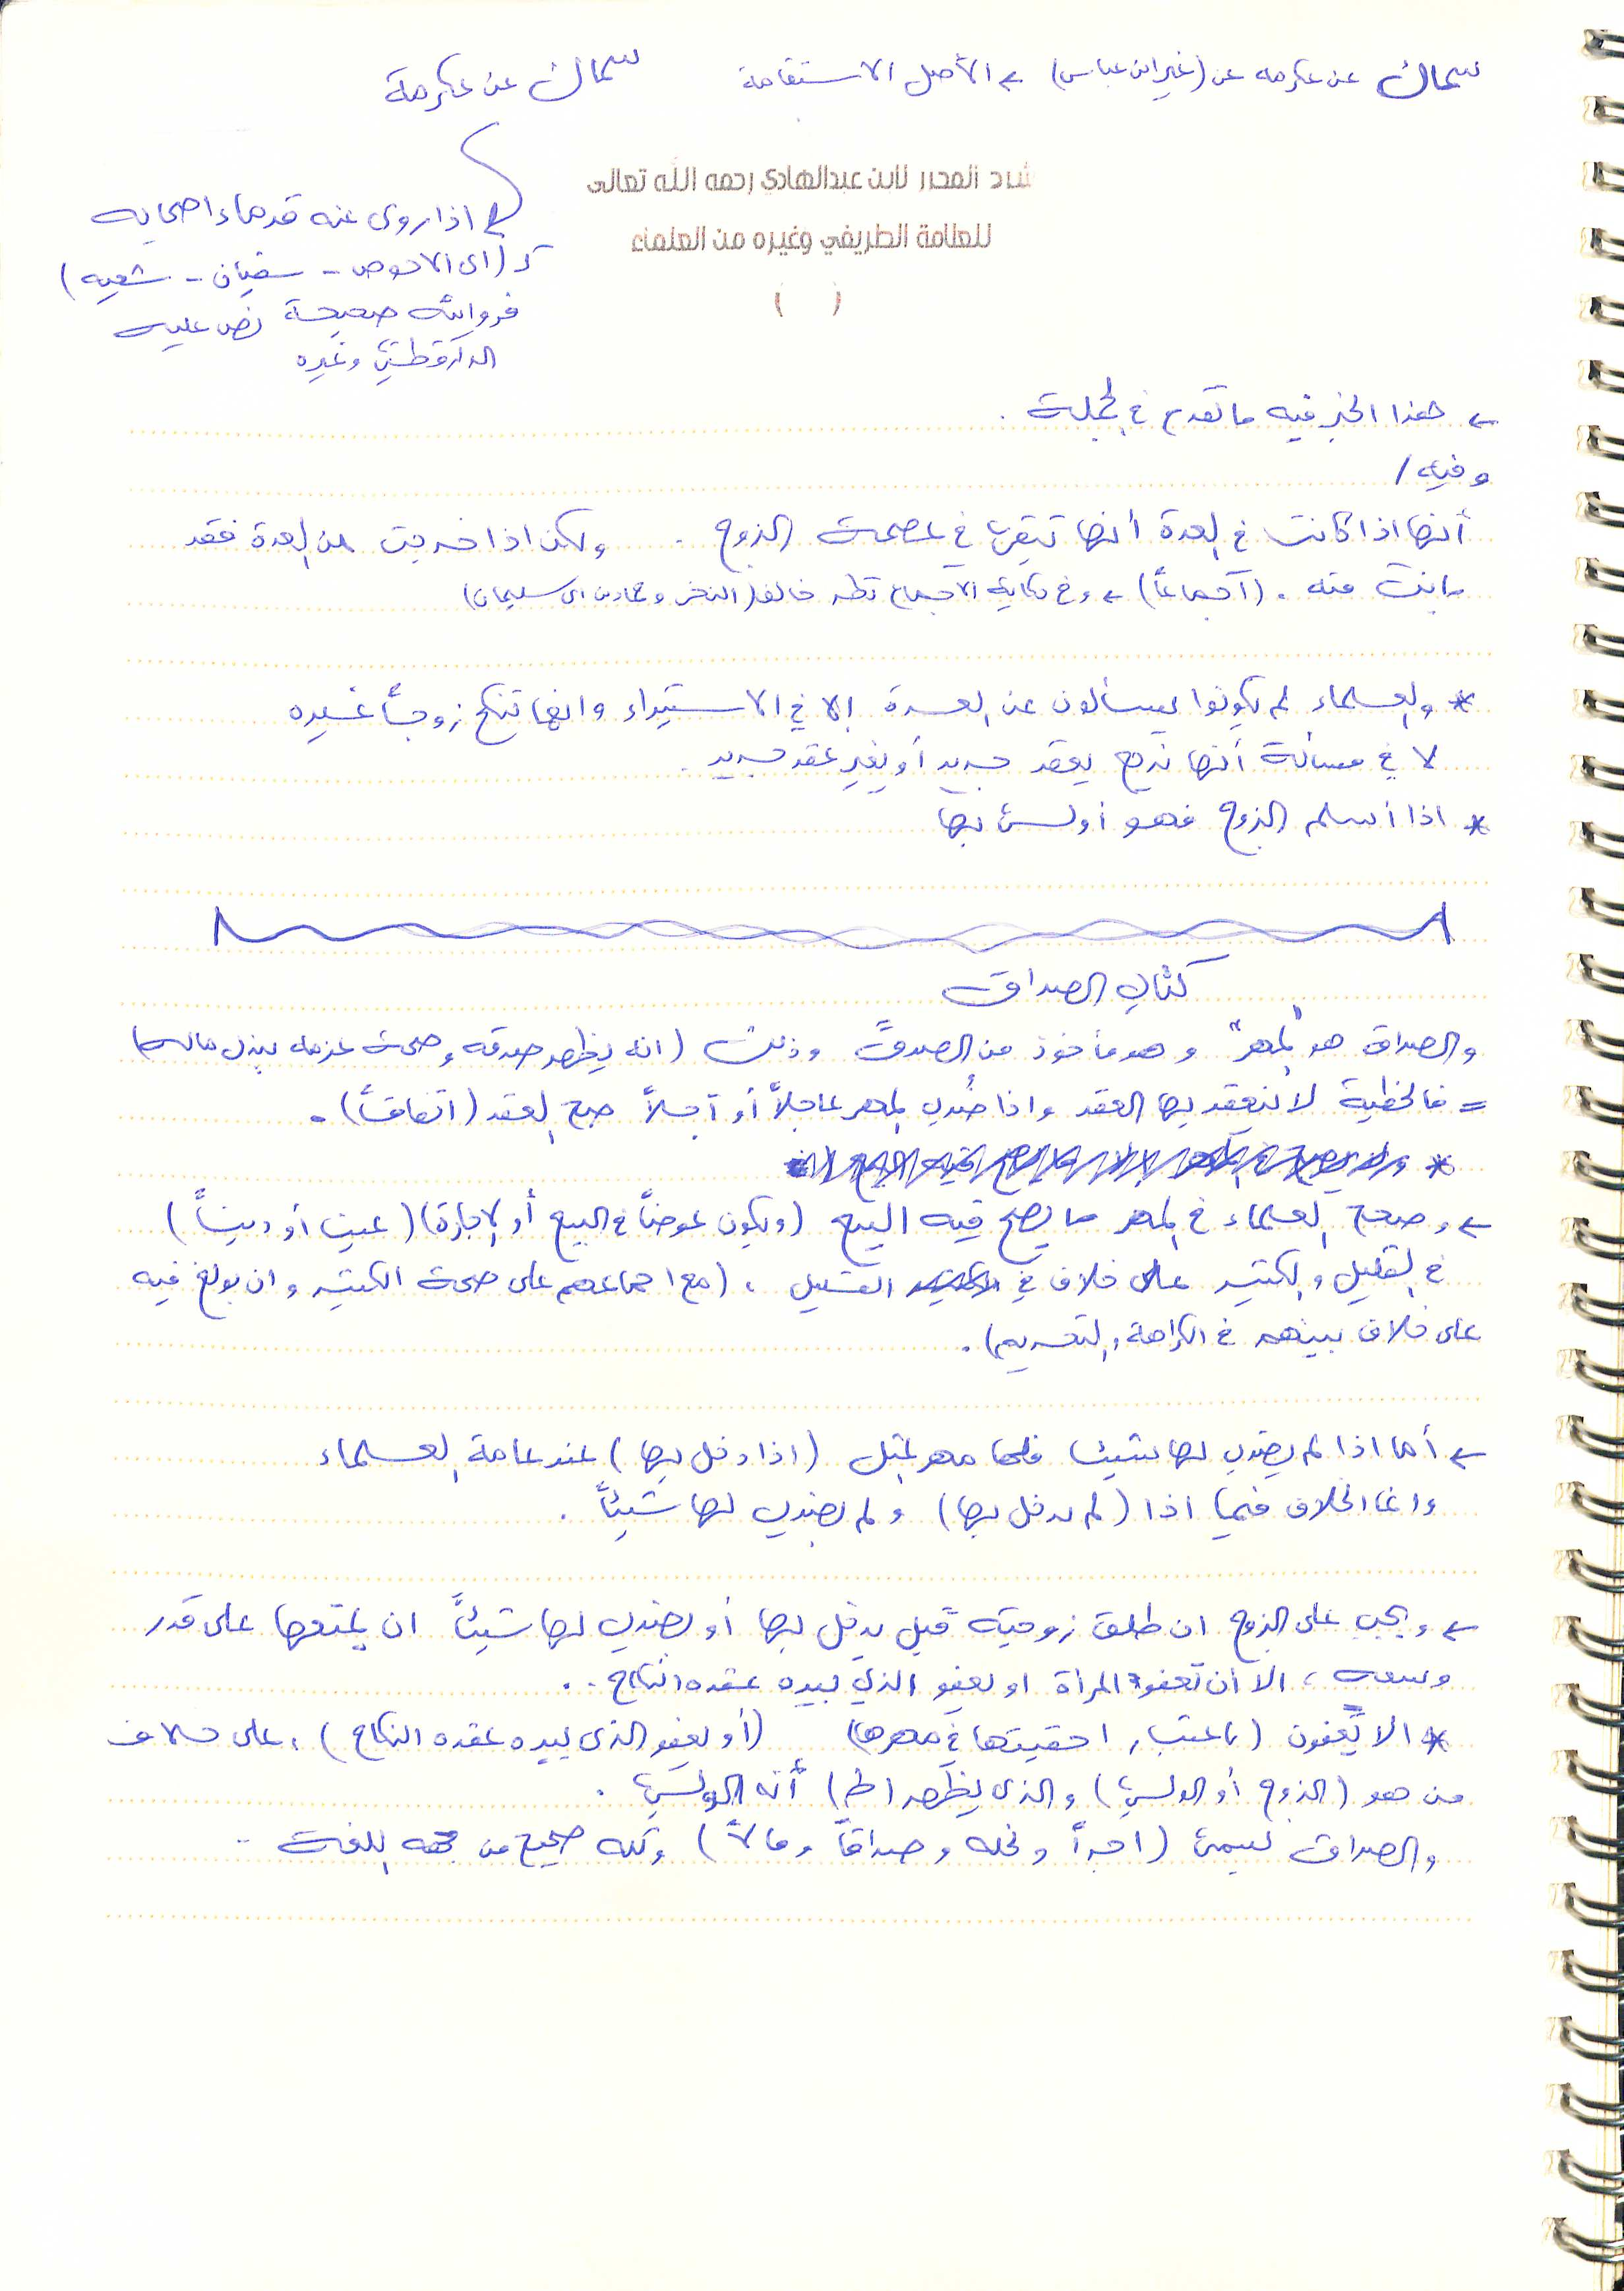 سماك عن عكرمه عن (غير ابن عباس) ← الأصل الاستقامة
سماك عن عكرمة
اذا روى عنه قدماء اصحابه
كـ (ابى الاحوص - سفيان - شعبه)
فروايته صحيحة نص عليه
الدارقطني وغيره
شرح المحرر لابن عبدالهادي رحمه الله تعالى
للعلامة الطريفي وغيره من العلماء
( )
← هذا الخبر فيه ما تقدم في الجملة .
وفيه /
أنها اذا كانت في العدة أنها تبقى في عصمة الزوج . ولكن اذا خرجت من العدة فقد
بانت منه . (اجماعاً) ← وفي حكاية الاجماع نظر خالف (النخعي وحماد بن ابى سليمان)
* والعلماء لم يكونوا يسألون عن العدة إلا في الاستبراء وانها تنكح زوجاً غيره
لا في مسألة أنها ترجع بعقد جديد أو بغير عقد جديد .
* اذا أسلم الزوج فهو أولى بها
كتاب الصداق
والصداق هو "المهر" وهو مأخوذ من الصدق وذلك (انه يظهر صدقه وصحة عزمه ببذل ماله)
= فالخطبة لا ينعقد بها العقد واذا ضُرب المهر عاجلاً أو آجلاً صح العقد (اتفاقاً) .
*
← وصحح العلماء في المهر ما يصح فيه البيع (ويكون عوضاً في البيع أو الاجارة) (عيناً أو ديناً)
في القليل والكثير على خلاف في القليل ، (مع اجماعهم على صحة الكثير وان بولغ فيه
على خلاف بينهم في الكراهة والتحريم) .
← أما اذا لم يضرب لها شيئا فلها مهر المثل (اذا دخل بها) عند عامة العلماء
وانما الخلاف فيما اذا (لم يدخل بها) و لم يضرب لها شيئاً .
← ويجب على الزوج ان طلق زوجته قبل يدخل بها أو يضرب لها شيئاً ان يمتعها على قدر
وسعه ، الا أن تعفو المرأة او يعفو الذي بيده عقده النكاح ..
* الا يعفون (باعتبار احقيتها في مهرها) (أو يعفو الذي بيده عقده النكاح) ، على خلاف
من هو (الزوج أو الولي) والذي يظهر أنه الولي .
والصداق يسمى (اجراً ونحله وصداقاً ومالاً) وكله صحيح من جهه اللغة ..